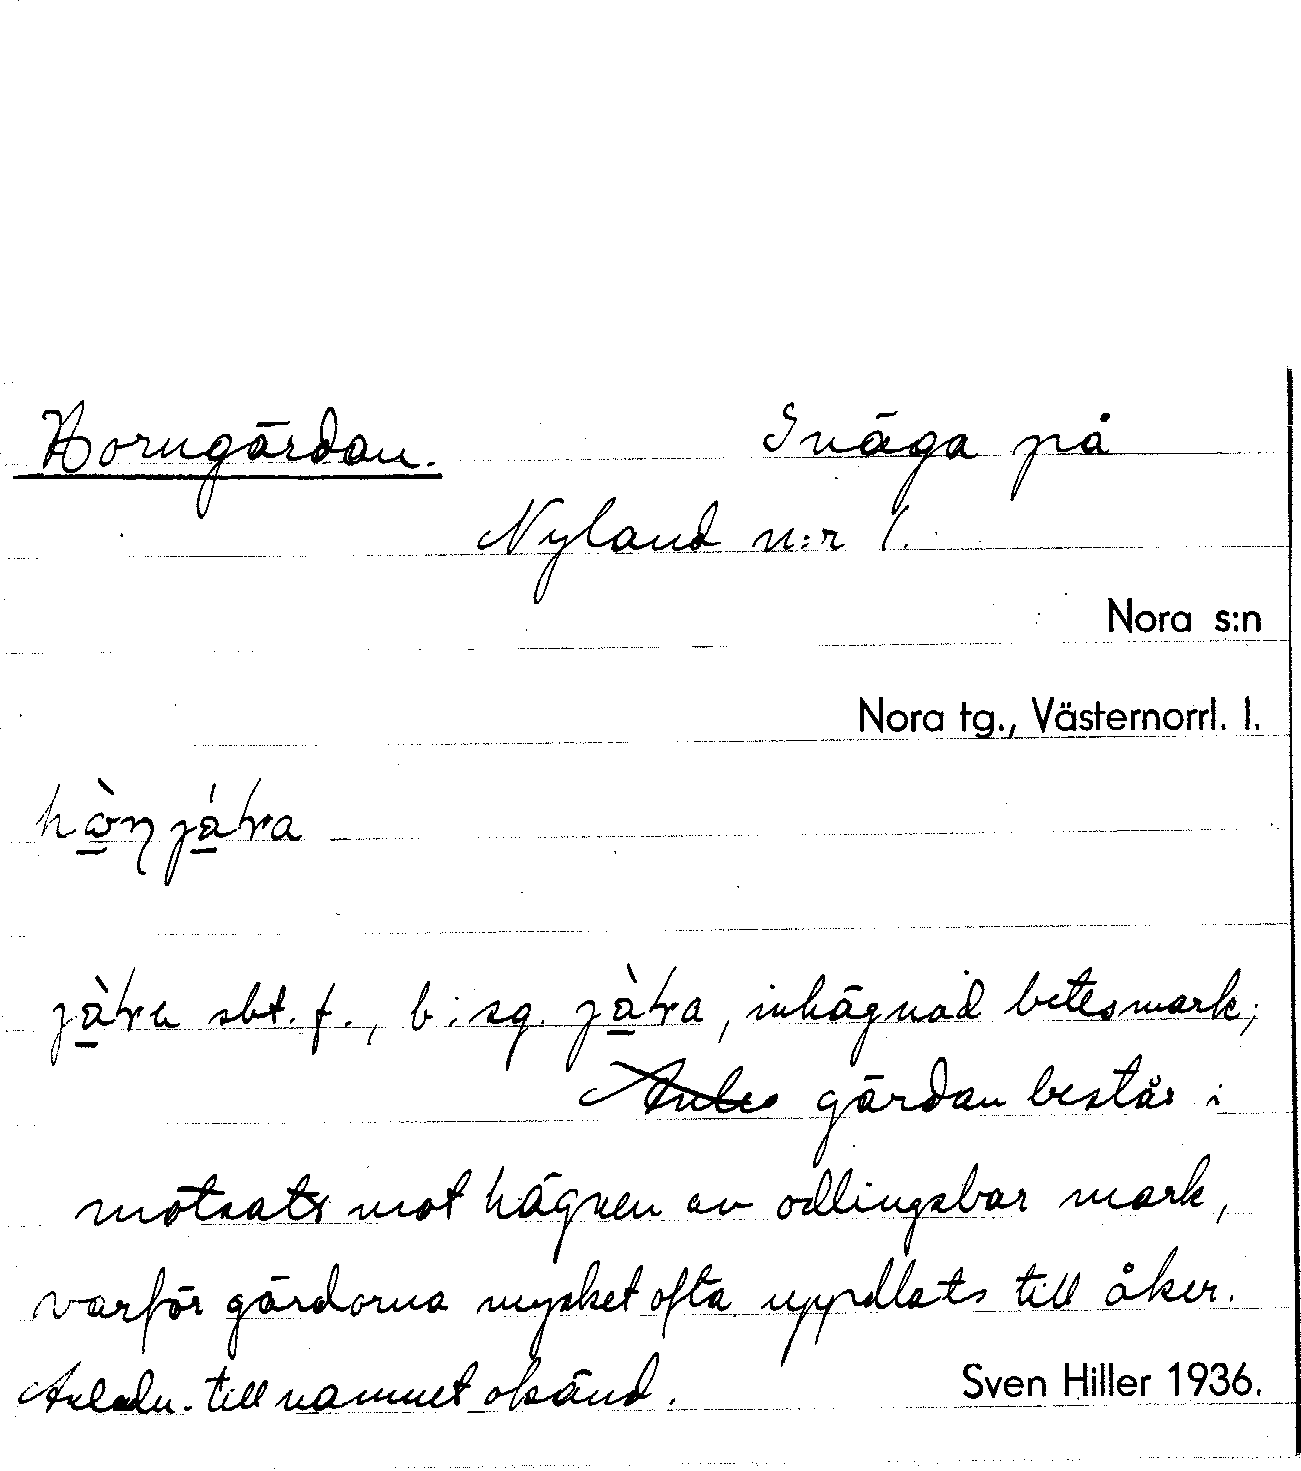 Horngärdan. Inäga på
Nyland n:r 1.
Nora s:n
Nora tg., Västernorrl. l.
jä̀ra sbt. f., b. sg. jä̀ra, inhägnad betesmark;
gärdan består i
motsats mot hägnen av odlingsbar mark,
varför gärdorna mycket ofta uppodlats till åker.
Anledn. till namnet okänd. Sven Hiller 1936.